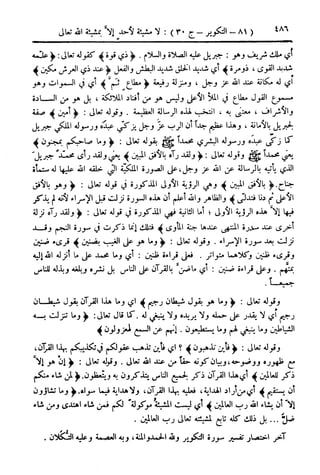 ٤٨٦ (٨١ – التكوير – ج ٣٠) : لا مشيئة لأحد إلا بمشيئة الله تعالى
أي ملك شريف وهو : جبريل عليه الصلاة والسلام . ﴿ ذي قوة ﴾ كقوله تعالى : ﴿ علمه
شديد القوى ، ذو مرة ﴾ أي شديد الخلق شديد البطش والفعل ﴿ عند ذي العرش مكين ﴾
أي له مكانة عند الله عز وجل ، ومنزلة رفيعة ﴿ مطاع ثم ﴾ أي في السموات وهو
مسموع القول مطاع في الملأ الأعلى وليس هو من أفناد الملائكة ، بل هو من السادة
والأشراف ، معتنى به ، انتخب لهذه الرسالة العظيمة . وقوله تعالى : ﴿ أمين ﴾ صفة
لجبريل بالأمانة ، وهذا عظيم جداً أن الرب عز وجل يزكي عبده ورسوله الملكي جبريل
كما زكى عبده ورسوله البشري محمداً ﷺ بقوله تعالى : ﴿ وما صاحبكم بمجنون ﴾
يعني محمداً ﷺ وقوله تعالى : ﴿ ولقد رآه بالأفق المبين ﴾ يعني ولقد رأى محمد جبريل
الذي يأتيه بالرسالة عن الله عز وجل على الصورة الملكية التي خلقه الله عليها له ستمائة
جناح . ﴿ بالأفق المبين ﴾ وهي الرؤية الأولى المذكورة في قوله تعالى : ﴿ وهو بالأفق
الأعلى ثم دنا فتدلى ﴾ والظاهر والله أعلم أن هذه السورة نزلت قبل الإسراء لأنه لم يذكر
فيها إلا هذه الرؤية الأولى ، أما الثانية فهي المذكورة في قوله تعالى : ﴿ ولقد رآه نزلة
أخرى عند سدرة المنتهى عندها جنة المأوى ﴾ فتلك إنما ذكرت في سورة النجم وقد
نزلت بعد سورة الإسراء . وقوله تعالى : ﴿ وما هو على الغيب بضنين ﴾ قرىء ضنين
وقرىء ظنين وكلاهما متواتر . فعلى قراءة ظنين : أي وما محمد على ما أنزله الله إليه
بمتهم . وعلى قراءة ضنين : أي ما ضن بالقرآن على الناس بل نشره وبلغه وبذله للناس
جميعاً .
وقوله تعالى : ﴿ وما هو بقول شيطان رجيم ﴾ اي وما هذا القرآن بقول شيطان
رجيم أي لا يقدر على حمله ولا يريده ولا ينبغي له . كما قال تعالى : ﴿ وما تنزلت به
الشياطين وما ينبغي لهم وما يستطيعون . إنهم عن السمع لمعزولون ﴾
وقوله تعالى : ﴿ فأين تذهبون ﴾ ؟ أي فأين تذهب عقولكم في تكذيبكم بهذا القرآن ،
مع ظهوره ووضوحه ، وبيان كونه حقاً من عند الله تعالى . وقوله تعالى : ﴿ إن هو إلا
ذكر للعالمين ﴾ أي هذا القرآن ذكر لجميع الناس يتذكرون به ويتعظون . ﴿ لمن شاء منكم
أن يستقيم ﴾ أي من أراد الهداية ، فعليه بهذا القرآن ، ولا هداية فيما سواه . ﴿ وما تشاؤون
إلا أن يشاء الله رب العالمين ﴾ أي ليست المشيئة موكولة لكم فمن شاء اهتدى ومن شاء
ضل ... بل ذلك كله تابع لمشيئته تعالى رب العالمين .
آخر اختصار تفسير سورة التكوير ولله الحمد والمنة ، وبه العصمة وعليه التكلان .